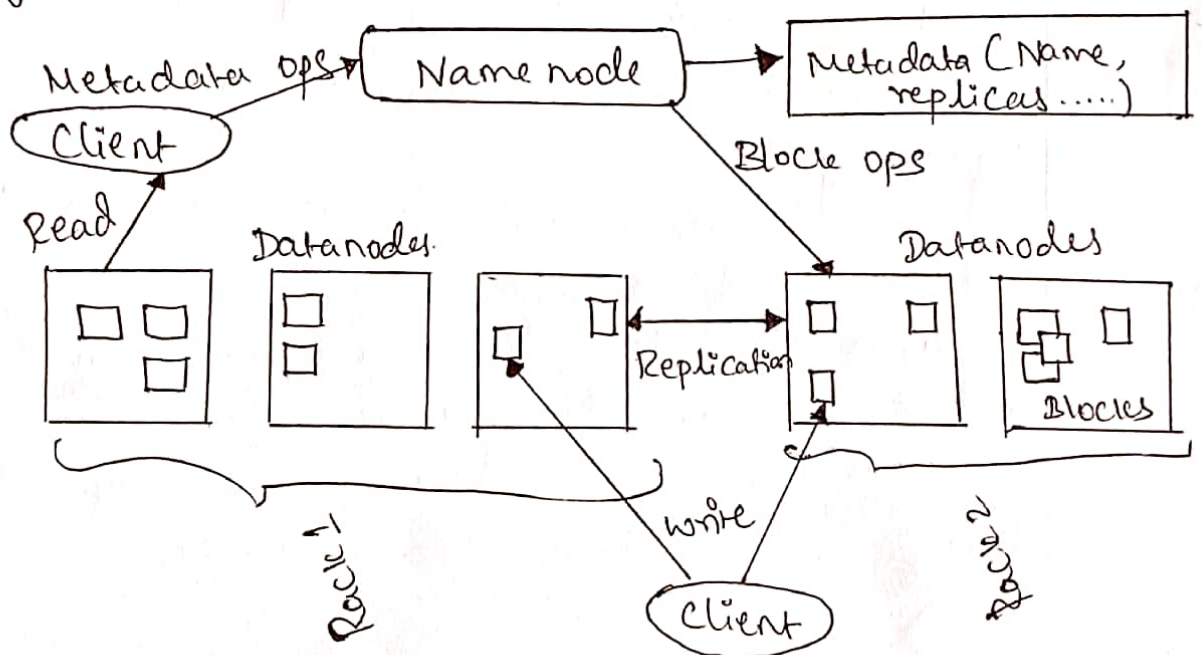 Metadata ops
Name node
Metadata (Name,
replicas.....)
Client
Block ops
Read
Datanodes.
Datanodes
Replication
Blocks
Rack 1
write
Rack 2
Client